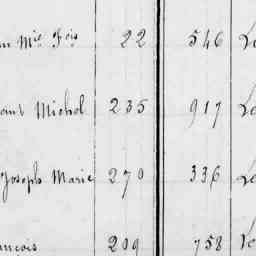 Mie Fois 22 546 Le
Michel 235 917 Le
Joseph Marie 270 336 Le
ancois 209 758 Le